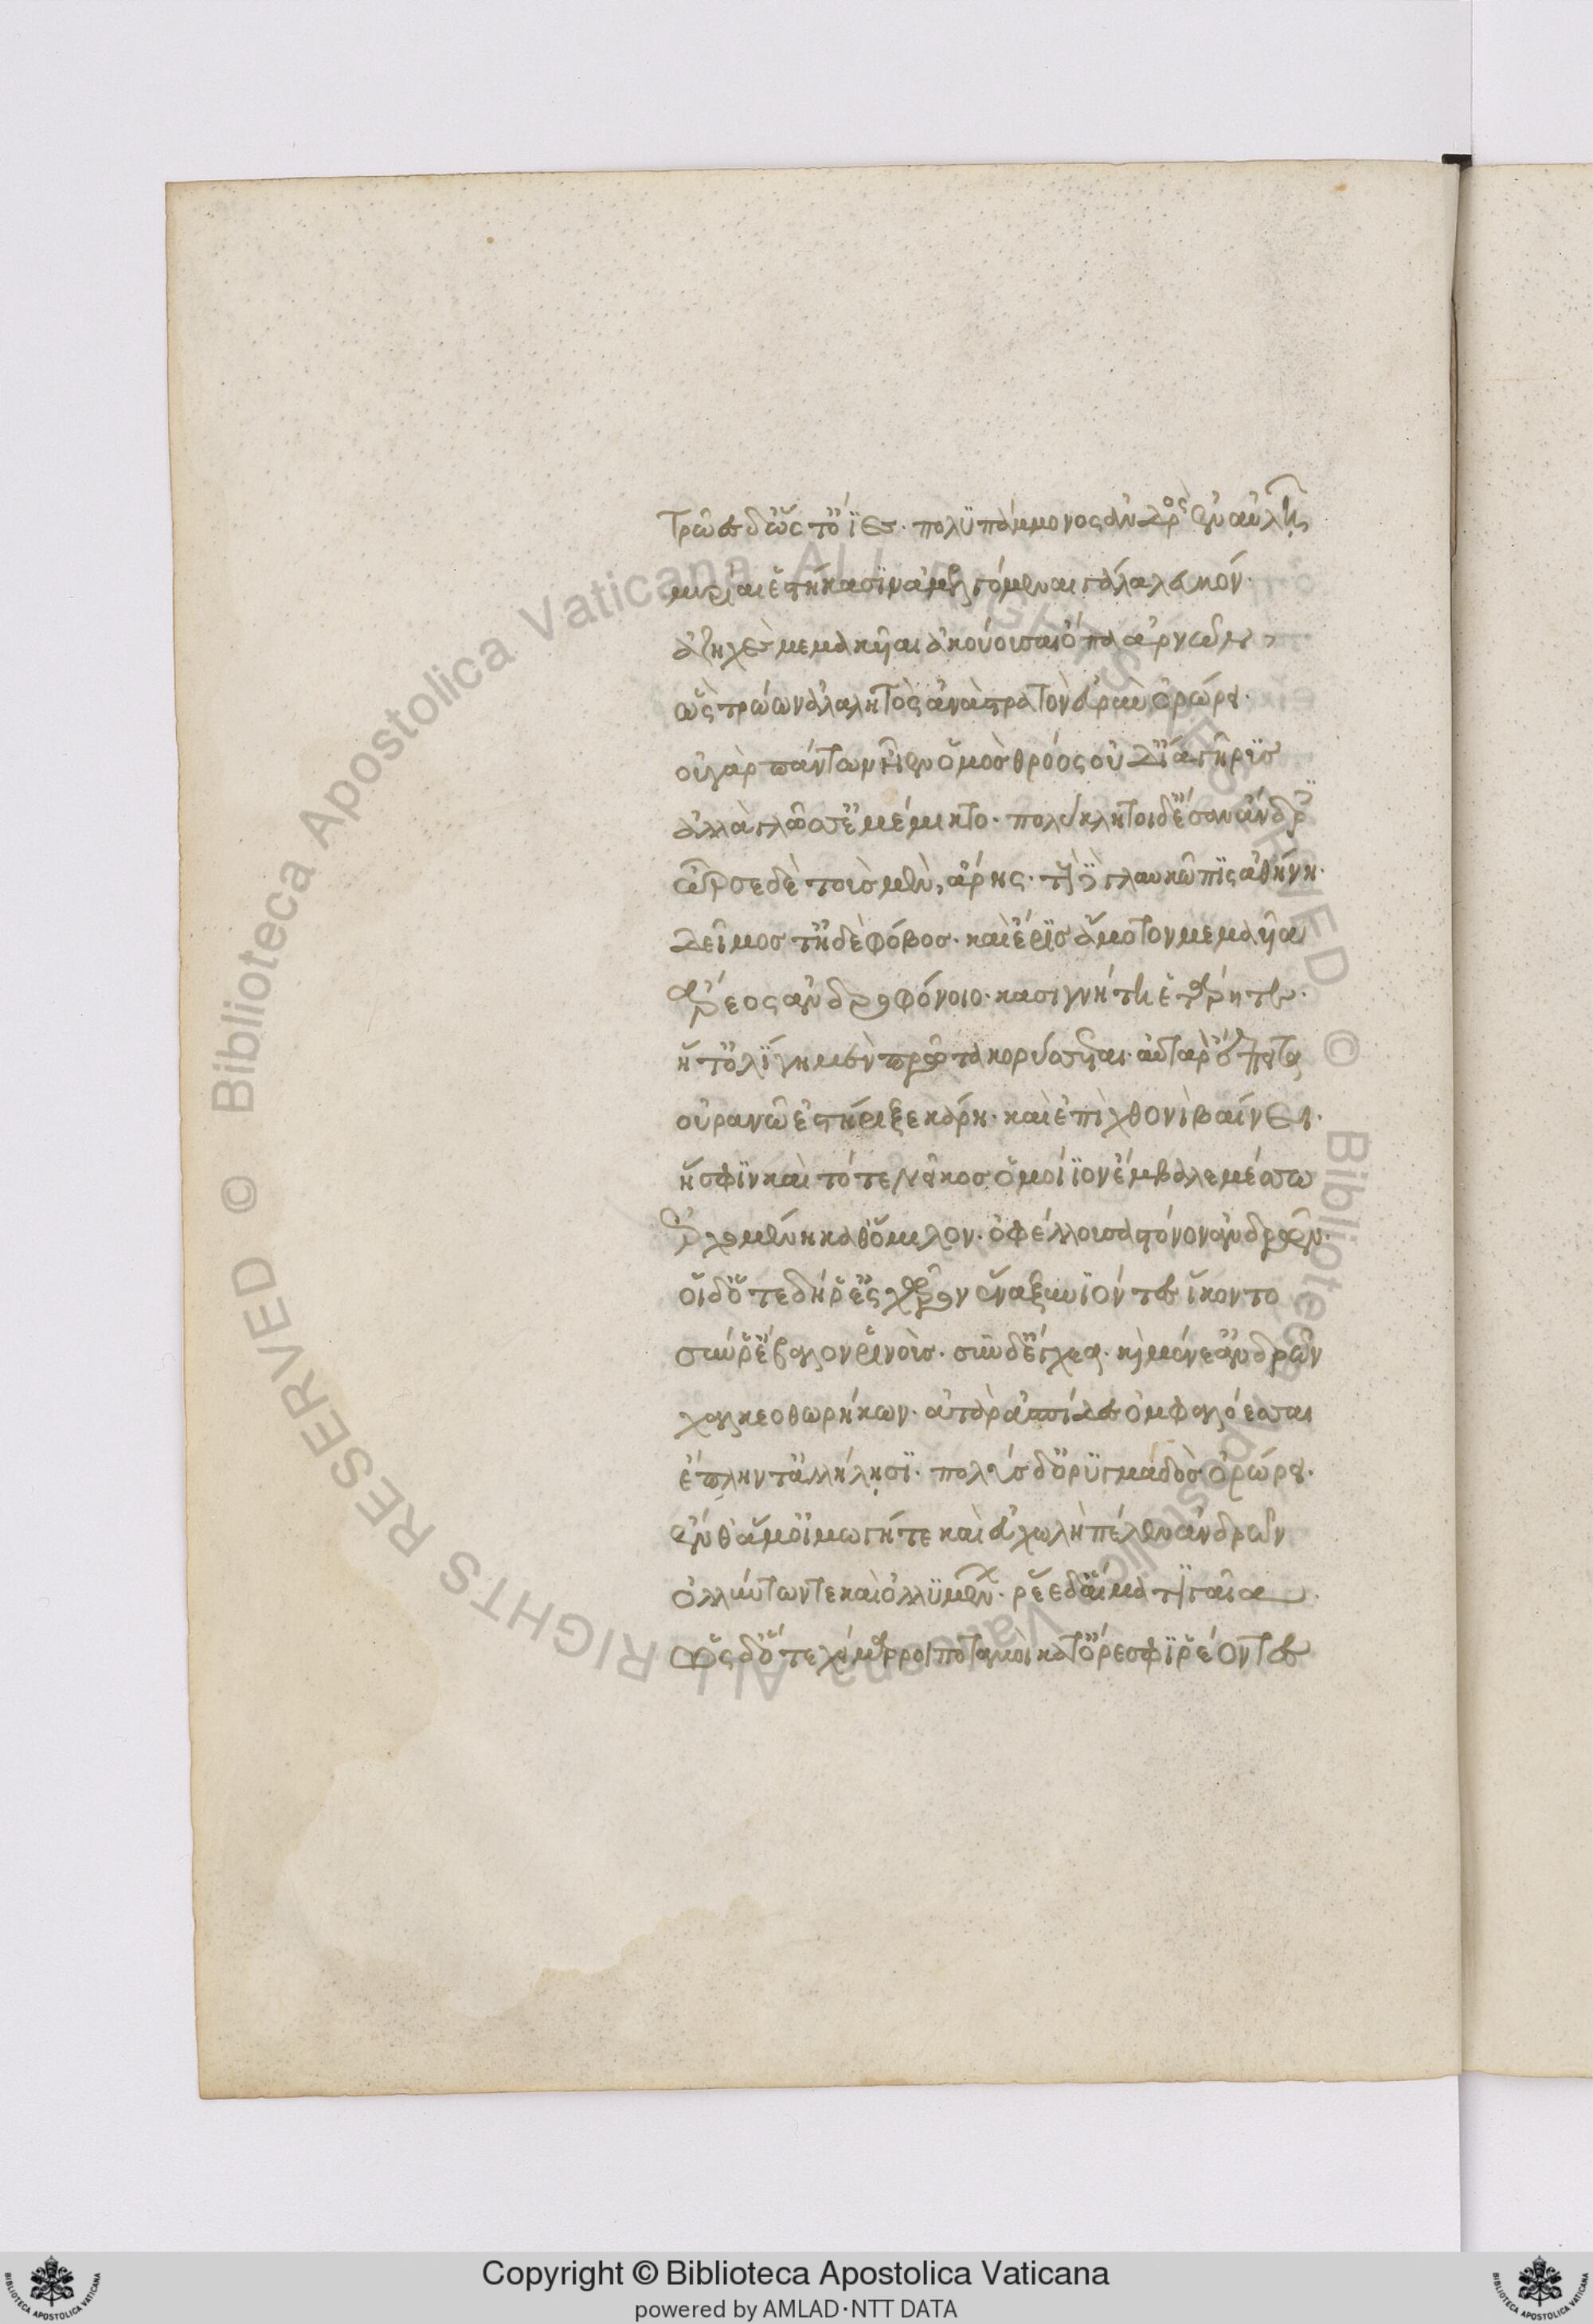 Τρῶες δ' ὥς τ' ὄϊες πολυπάμμονος ἀνδρὸς ἐν αὐλῇς
μυρίαι ἑστήκασιν ἀμελγόμεναι γάλα λευκόν.
ἀζηχὲς μεμακυῖαι ἀκούουσαι ὄπα ἀρνῶν,
ὣς τρώων ἀλαλητὸς ἀνὰ στρατὸν εὐρὺν ὀρώρει.
οὐ γὰρ πάντων ἦεν ὁμὸς θρόος οὐδ' ἴα γῆρυς
ἀλλὰ γλῶσσ' ἐμέμικτο. πολύκλητοι δ' ἔσαν ἄνδρες
ὦρσε δὲ τοὺς μὲν, ἄρης. τοὺς δὲ γλαυκῶπις ἀθήνη.
δεῖμος τ' ἠδὲ φόβος. καὶ ἔρις ἄμοτον μεμαυῖα
ἄρεος ἀνδροφόνοιο. κασιγνήτη ἑτάρη τε.
ἥ τ' ὀλίγη μὲν πρῶτα κορύσσεται. αὐτὰρ ἔπειτα
οὐρανῶ ἐστήριξε κάρη. καὶ ἐπὶ χθονὶ βαίνει.
ἥ σφιν καὶ τότε νεῖκος ὁμοίϊον ἔμβαλε μέσσω
ἐρχομένη καθ' ὅμιλον. ὀφέλλουσα στόνον ἀνδρῶν.
οἱ δ' ὅτε δή ῥ' ἐς χῶρον ἕνα ξυνιόντες ἵκοντο
σύν ῥ' ἔβαλον ῥινούς. σὺν δ' ἔγχεα. καὶ μένε' ἀνδρῶν
χαλκεοθωρήκων. ἀτὰρ ἀσπίδες ὀμφαλόεσσαι
ἔπληντ' ἀλλήλῃσι. πολὺς δ' ὀρυμαγδὸς ὀρώρει.
ἔνθα δ' ἅμ' οἰμωγή τε καὶ εὐχωλὴ πέλεν ἀνδρῶν
ὀλλύντων τε καὶ ὀλλυμένων. ῥέε δ' αἵματι γαῖα.
ὡς δ' ὅτε χείμαρροι ποταμοὶ κατ' ὄρεσφι ῥέοντες
Copyright © Biblioteca Apostolica Vaticana
powered by AMLAD·NTT DATA
© Biblioteca Apostolica Vaticana ALL RIGHTS RESERVED
© Biblioteca Apostolica Vaticana ALL RIGHTS RESERVED